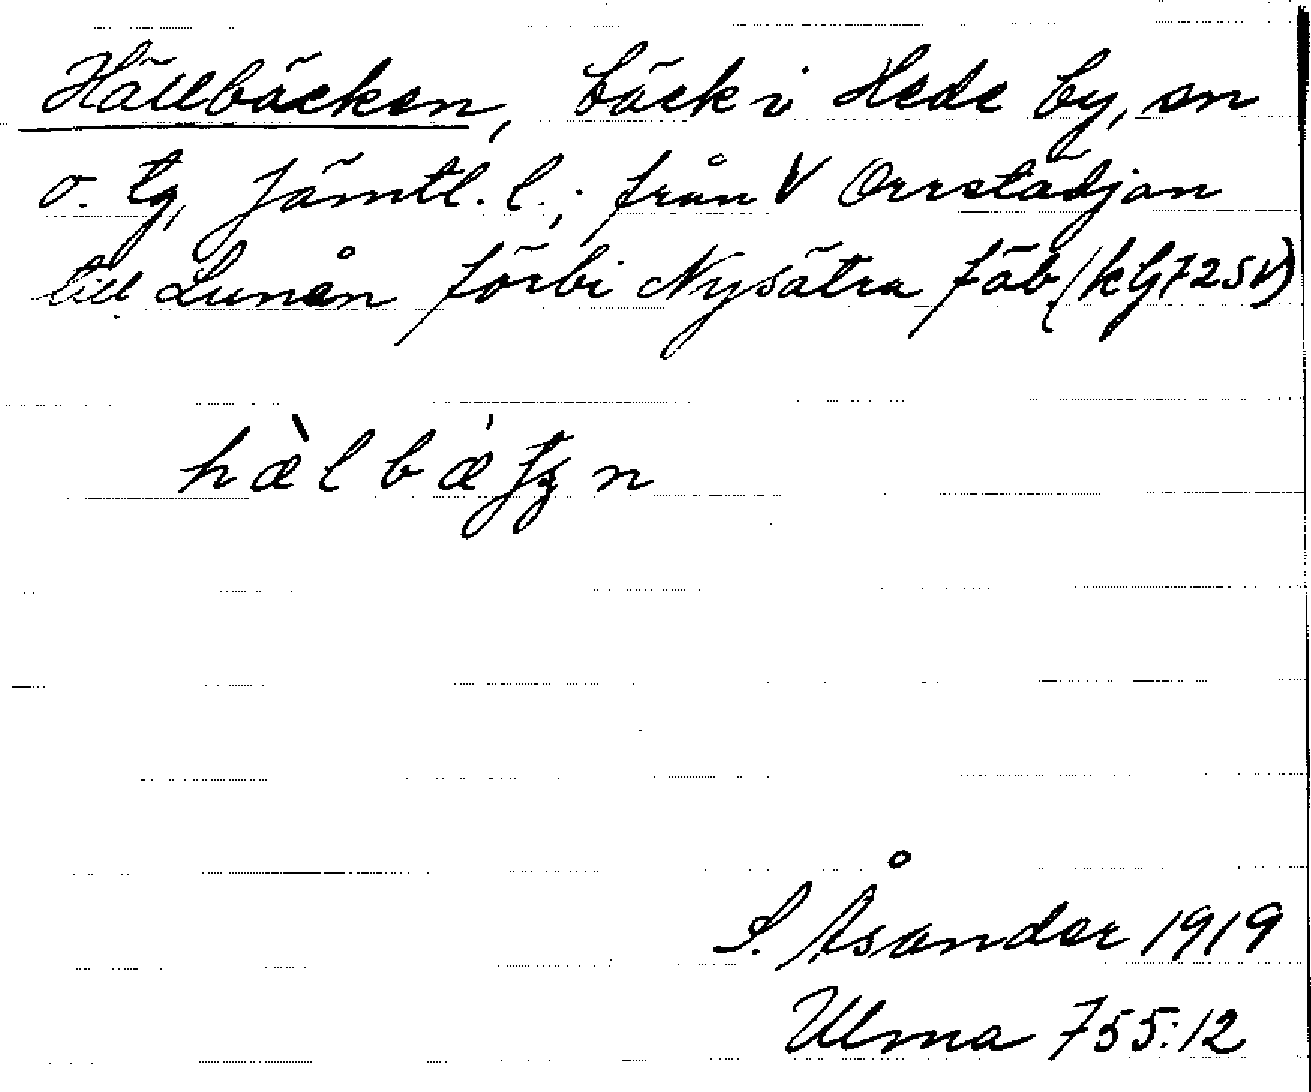 Hällbäcken, bäck i Hede by, sn
o. tg, Jämtl. l.; från V Orrstädjan
till Lunån förbi Nysätra fäb (kG 72SV)
S. Åsander 1919
Ulma 755:12